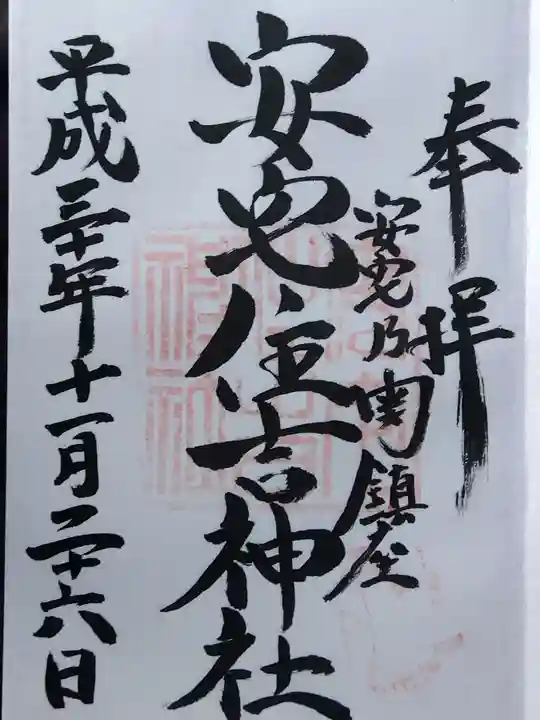 奉拝
安宅乃関鎮座
安宅住吉神社
平成三十年十一月二十六日